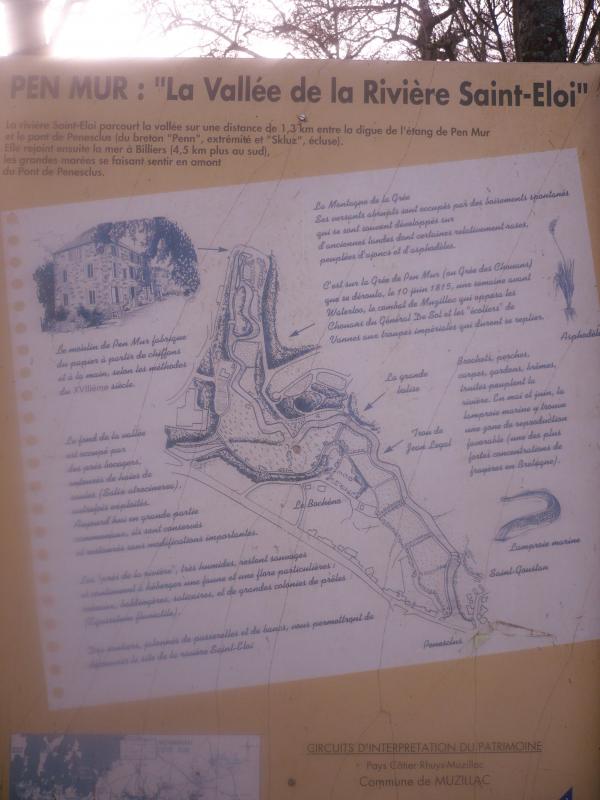 PEN MUR : "La Vallée de la Rivière Saint-Eloi"
La rivière Saint-Eloi parcourt la vallée sur une distance de 1,3 km entre la digue de l'étang de Pen Mur
et le pont de Penesclus (du breton "Penn", extrémité et "Skluz", écluse).
Elle rejoint ensuite la mer à Billiers (4,5 km plus au sud),
les grandes marées se faisant sentir en amont
du Pont de Penesclus.
La Montagne de la Grée
Ses versants abrupts sont occupés par des boisements spontanés
qui se sont souvent développés sur
d'anciennes landes dont certaines relativement rases,
peuplées d'ajoncs et d'asphodèles.
C'est sur la Grée de Pen Mur (ou Grée des Chouans)
que se déroula, le 10 juin 1815, une semaine avant
Waterloo, le combat de Muzillac qui opposa les
Chouans du Général De Sol et les "écoliers" de
Vannes aux troupes impériales qui durent se replier.
Asphodèle
Le moulin de Pen Mur fabrique
du papier à partir de chiffons
et à la main, selon les méthodes
du XVIIIème siècle.
La grande
balise
Trou de
Jean Legal
Brochets, perches,
carpes, gardons, brèmes,
truites peuplent la
rivière. En mai et juin, la
lamproie marine y trouve
une zone de reproduction
favorable (une des plus
fortes concentrations de
frayères en Bretagne).
Le fond de la vallée
est occupé par
des prés bocagers,
entourés de haies de
saules (Salix atrocinerea),
autrefois exploités.
Aujourd'hui en grande partie
communaux, ils sont conservés
et restaurés sans modifications importantes.
Le Bochéno
Lamproie marine
Saint-Goustan
Les "prés de la rivière", très humides, restent sauvages
et continuent à héberger une faune et une flore particulières :
baldingères, salicaires, et de grandes colonies de prêles
(Equisetum fluviatile).
Des sentiers, jalonnés de passerelles et de bancs, vous permettront de
découvrir le site de la rivière Saint-Eloi
Penesclus
CIRCUITS D'INTERPRETATION DU PATRIMOINE
Pays Côtier Rhuys-Muzillac
Commune de MUZILLAC